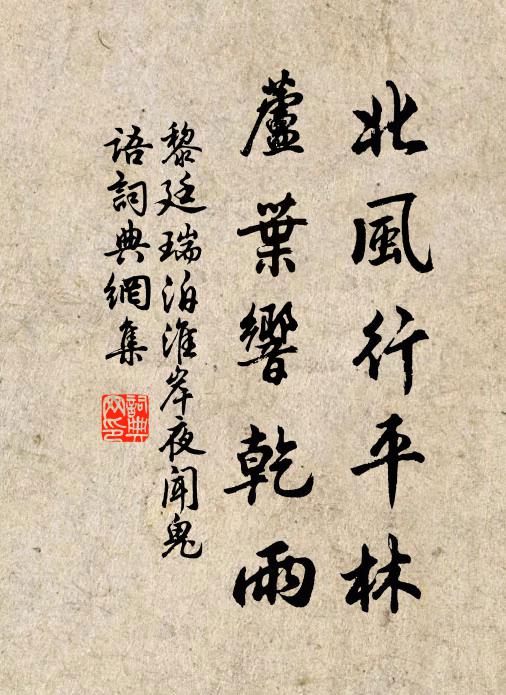 北風行平林
蘆葉響乾雨
黎廷瑞泊淮岸夜聞鬼
語詞典網集
詞典網印